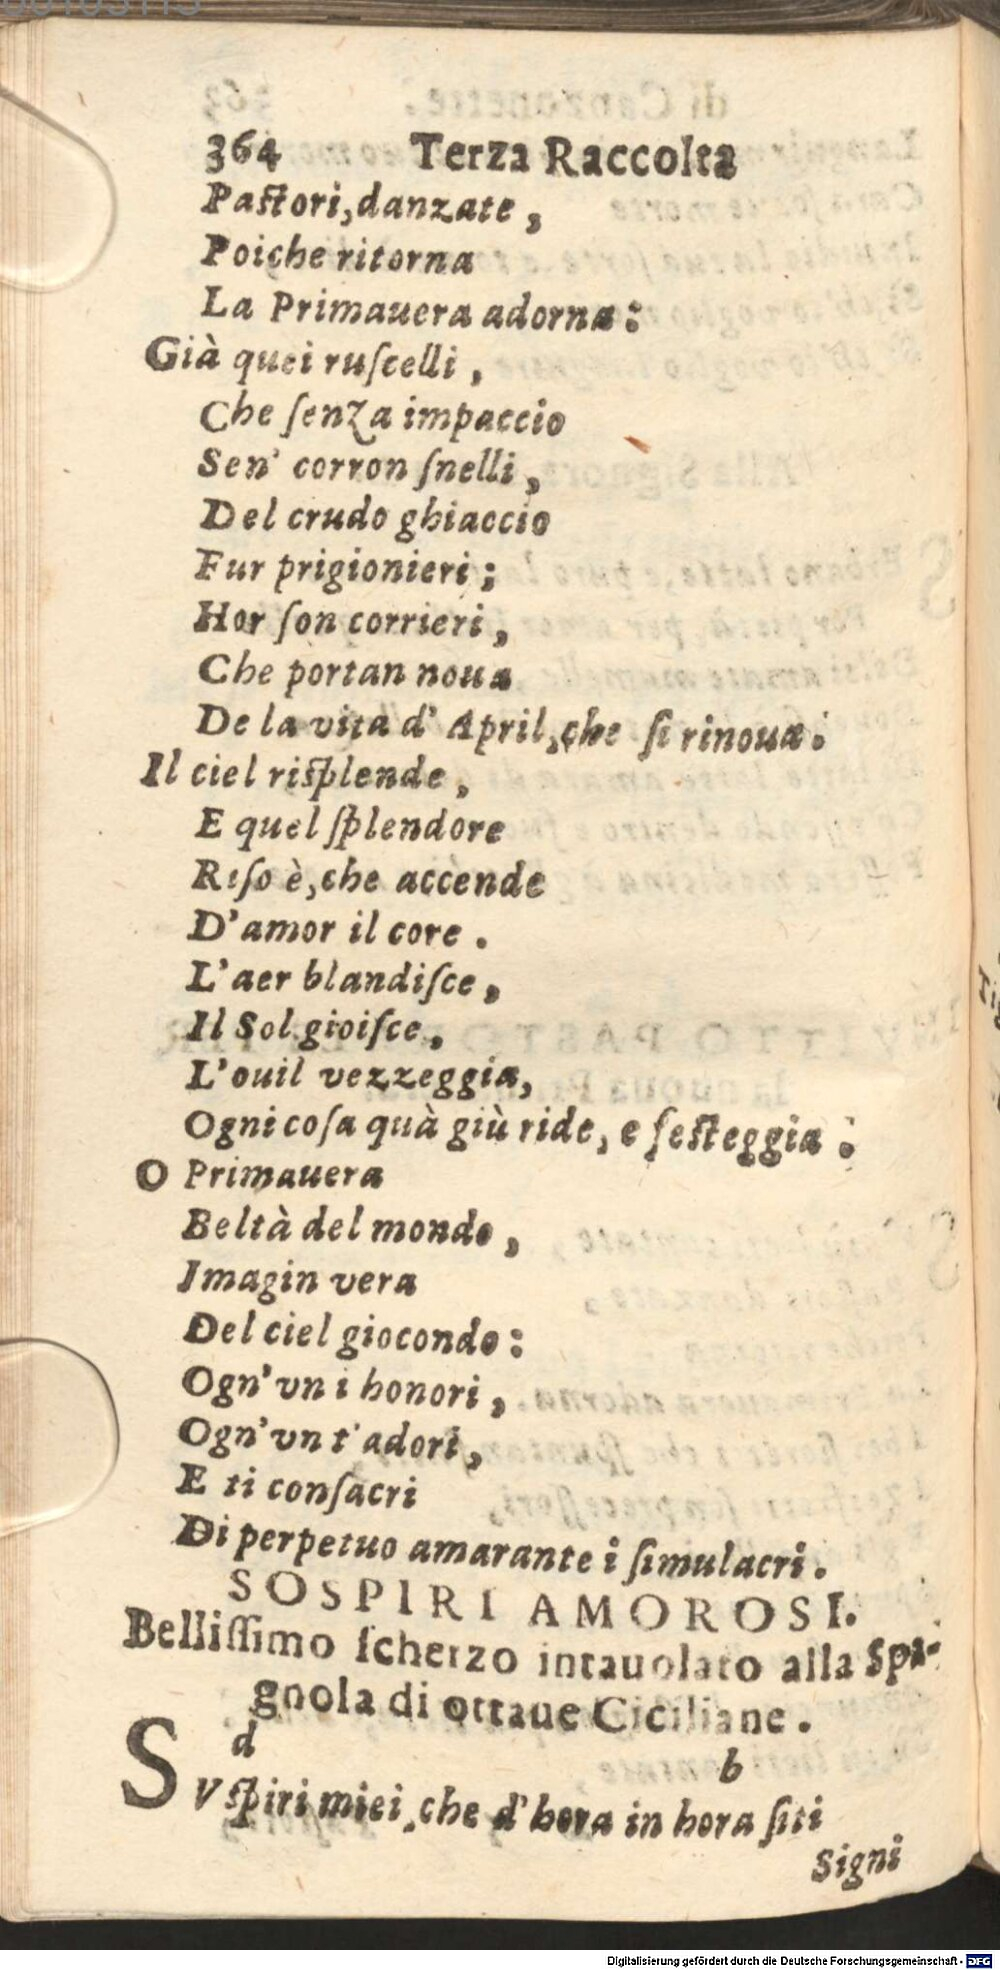 364 Terza Raccolta
Paſtori, danzate,
Poiche ritorna
La Primauera adorna:
Già quei ruſcelli,
Che ſenza impaccio
Sen' corron ſnelli,
Del crudo ghiaccio
Fur prigionieri;
Hor ſon corrieri,
Che portan noua
De la vita d' April, che ſi rinoua:
Il ciel riſplende,
E quel ſplendore
Riſo è, che accende
D'amor il core.
L'aer blandiſce,
Il Sol gioiſce,
L'ouil vezzeggia,
Ogni coſa quà giù ride, e feſteggia:
O Primauera
Beltà del mondo,
Imagin vera
Del ciel giocondo:
Ogn'vn i honori,
Ogn'vn t'adori,
E ti conſacri
Di perpetuo amarante i ſimulacri.
SOSPIRI AMOROSI.
Belliſſimo ſcherzo intauolato alla Spa-
gnola di ottaue Ciciliane.
d b
SVſpiri miei, che d'hora in hora ſiti
Signi
Digitalisierung gefördert durch die Deutsche Forschungsgemeinschaft - DFG